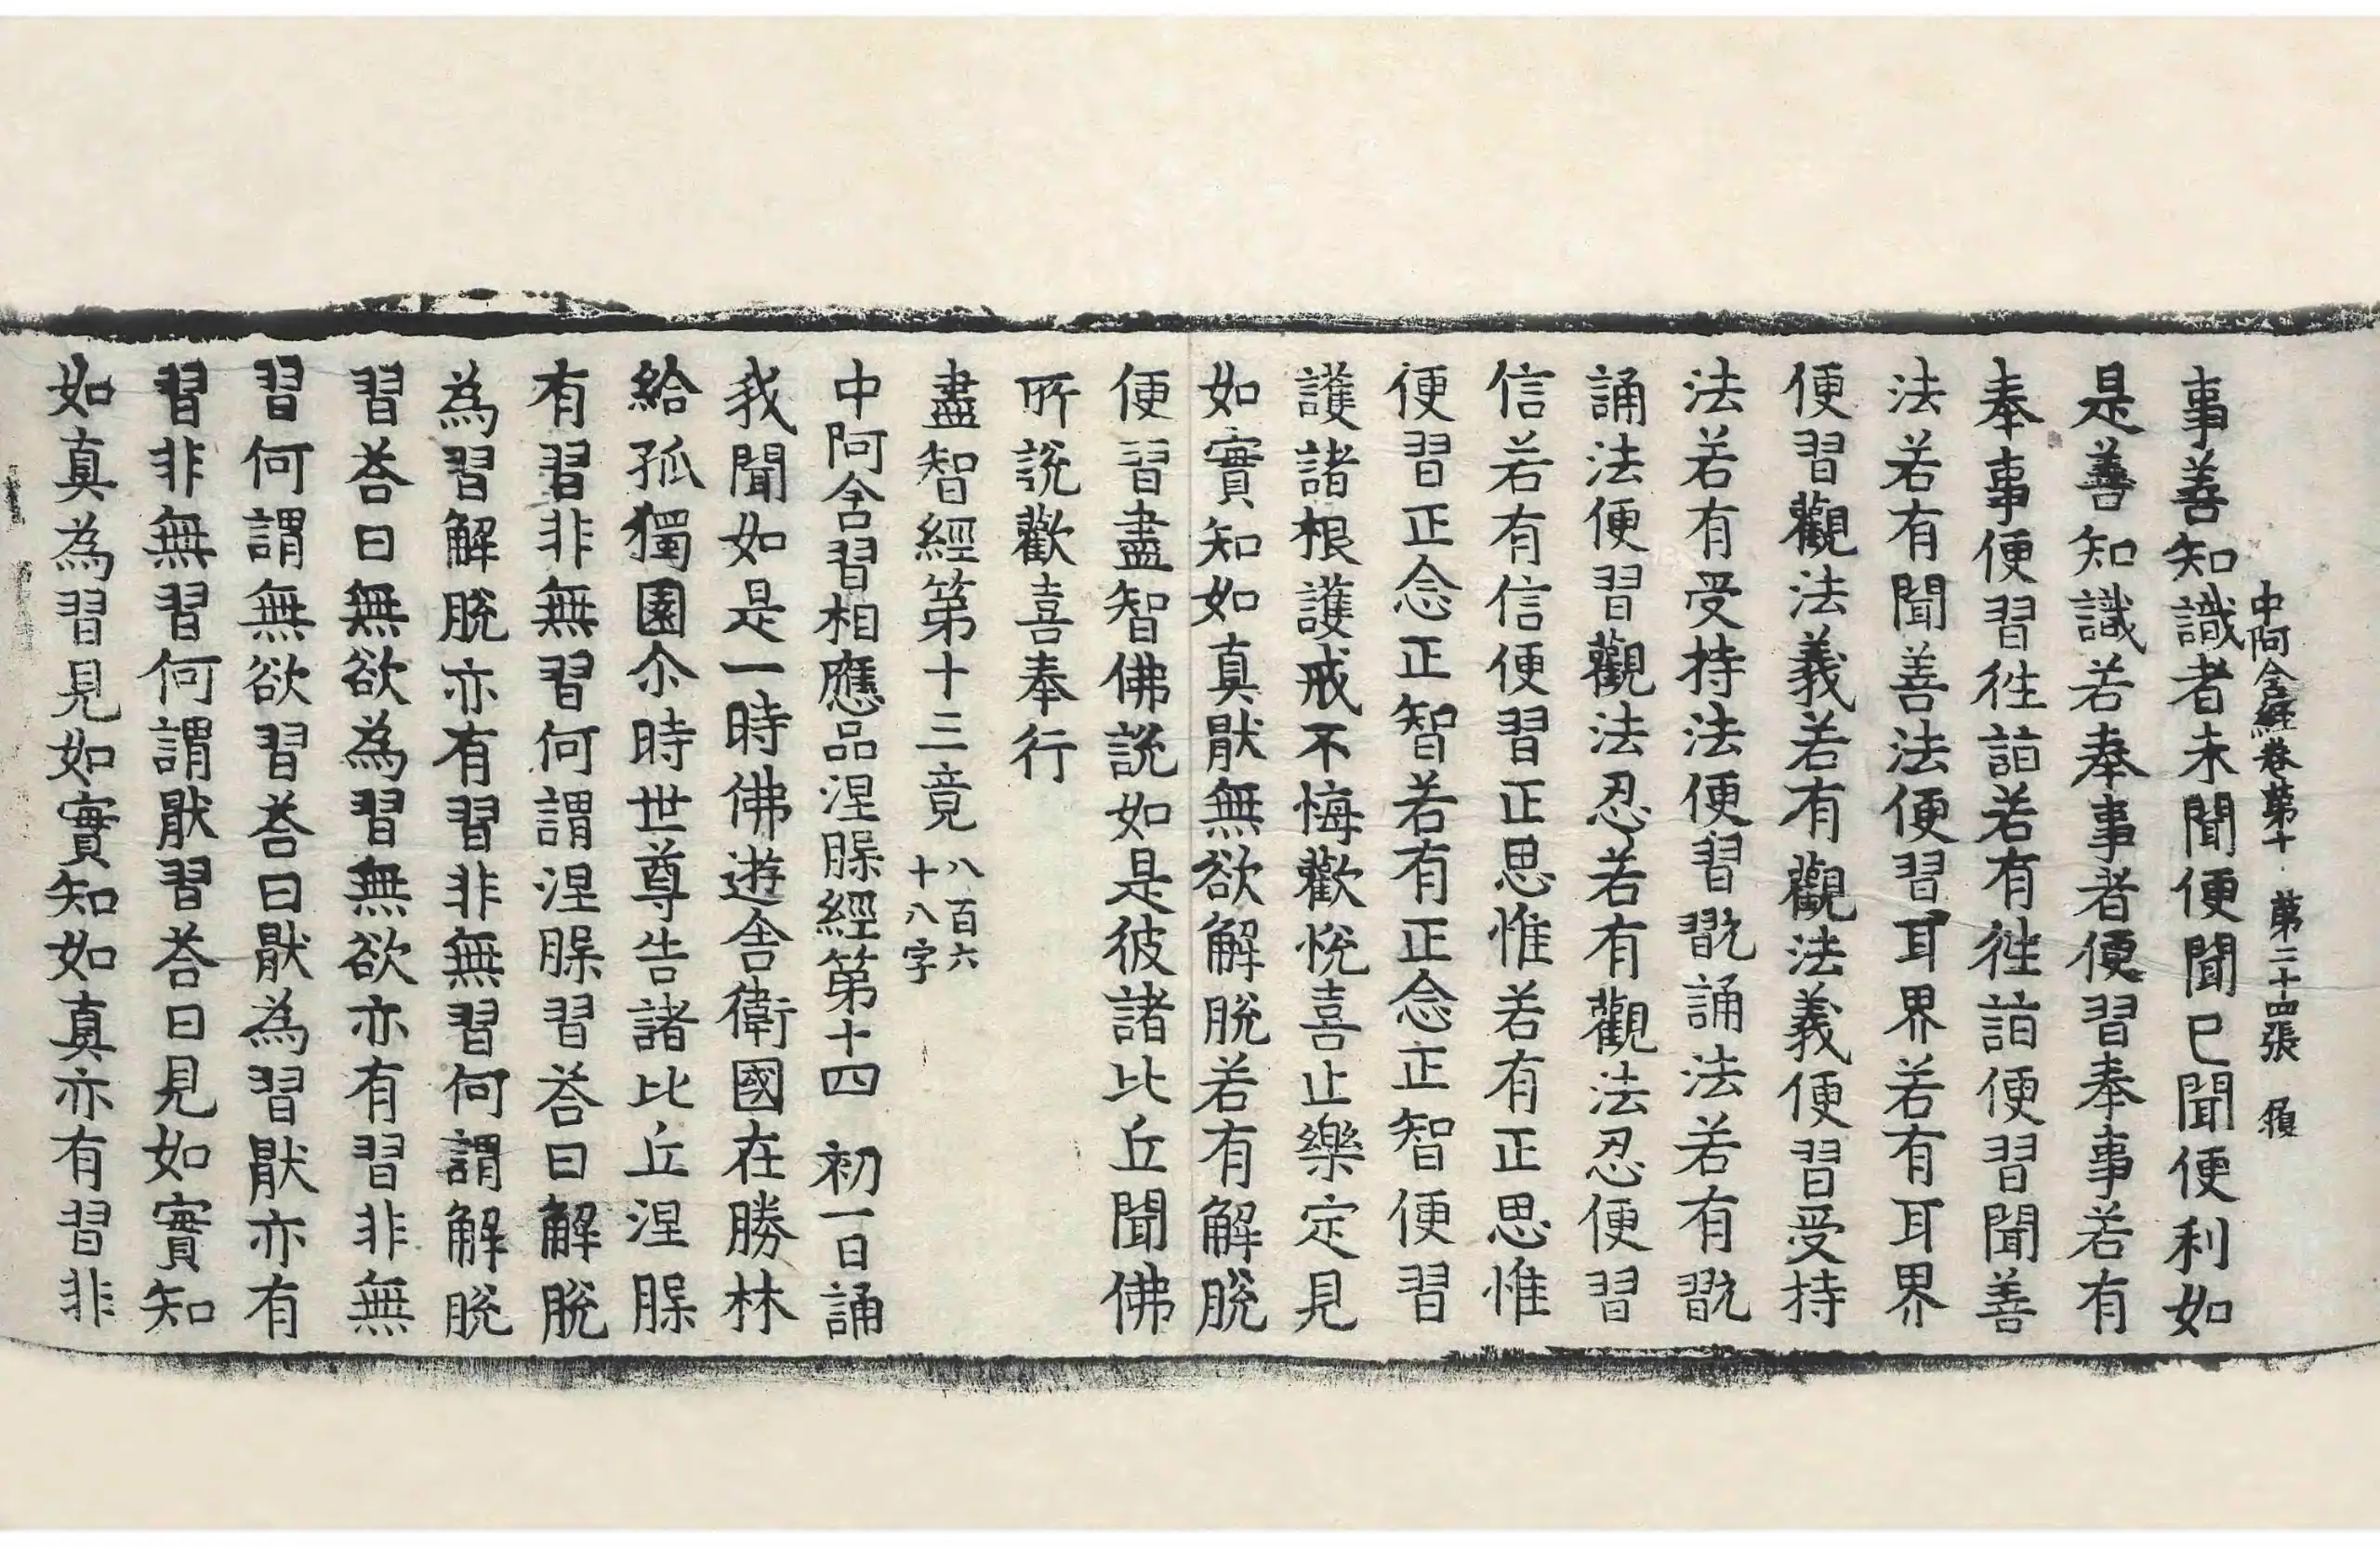 中阿含經卷第十　第二十四張　履
事善知識者未聞便聞已聞便利如
是善知識若奉事者便習奉事若有
奉事便習徃詣若有徃詣便習聞善
法若有聞善法便習耳界若有耳界
便習觀法義若有觀法義便習受持
法若有受持法便習翫誦法若有翫
誦法便習觀法忍若有觀法忍便習
信若有信便習正思惟若有正思惟
便習正念正智若有正念正智便習
護諸根護戒不悔歡悅喜止樂定見
如實知如真猒無欲解脫若有解脫
便習盡智佛說如是彼諸比丘聞佛
所說歡喜奉行
盡智經第十三竟八百六十八字
中阿含習相應品涅槃經第十四　初一日誦
我聞如是一時佛遊舍衛國在勝林
給孤獨園尒時世尊告諸比丘涅槃
有習非無習何謂涅槃習荅曰解脫
為習解脫亦有習非無習何謂解脫
習荅曰無欲為習無欲亦有習非無
習何謂無欲習荅曰猒為習猒亦有
習非無習何謂猒習荅曰見如實知
如真為習見如實知如真亦有習非